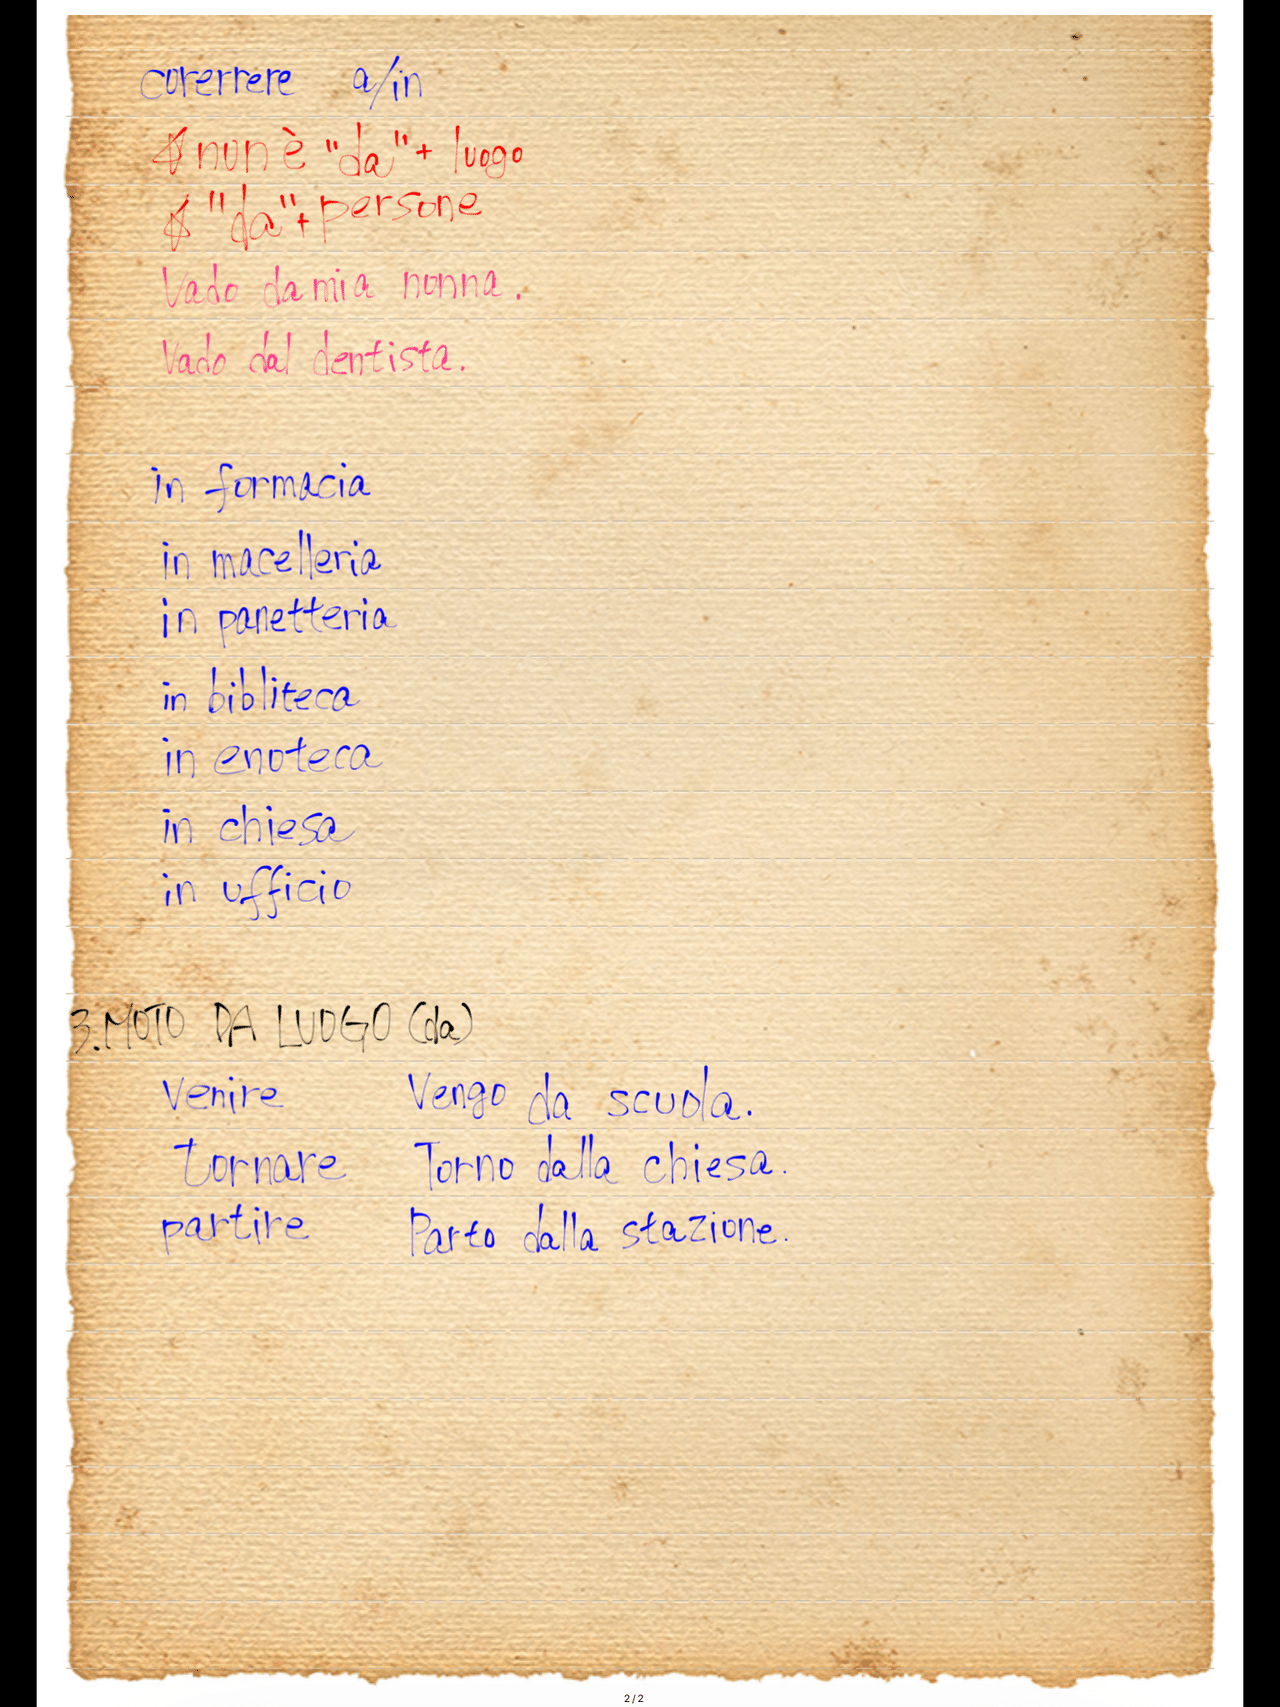 corerrere a/in
☆ non è "da" + luogo
☆ "da" + persone
Vado da mia nonna.
Vado dal dentista.
in formacia
in macelleria
in panetteria
in bibliteca
in enoteca
in chiesa
in ufficio
3. MOTO DA LUOGO (da)
venire Vengo da scuola.
tornare Torno dalla chiesa.
partire Parto dalla stazione.
2/2